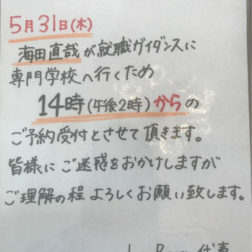 5月31日(木)
海田直哉が就職ガイダンスに
専門学校へ行くため
14時(午後2時)からの
ご予約受付とさせて頂きます。
皆様にご迷惑をおかけしますが
ご理解の程 よろしくお願い致します。